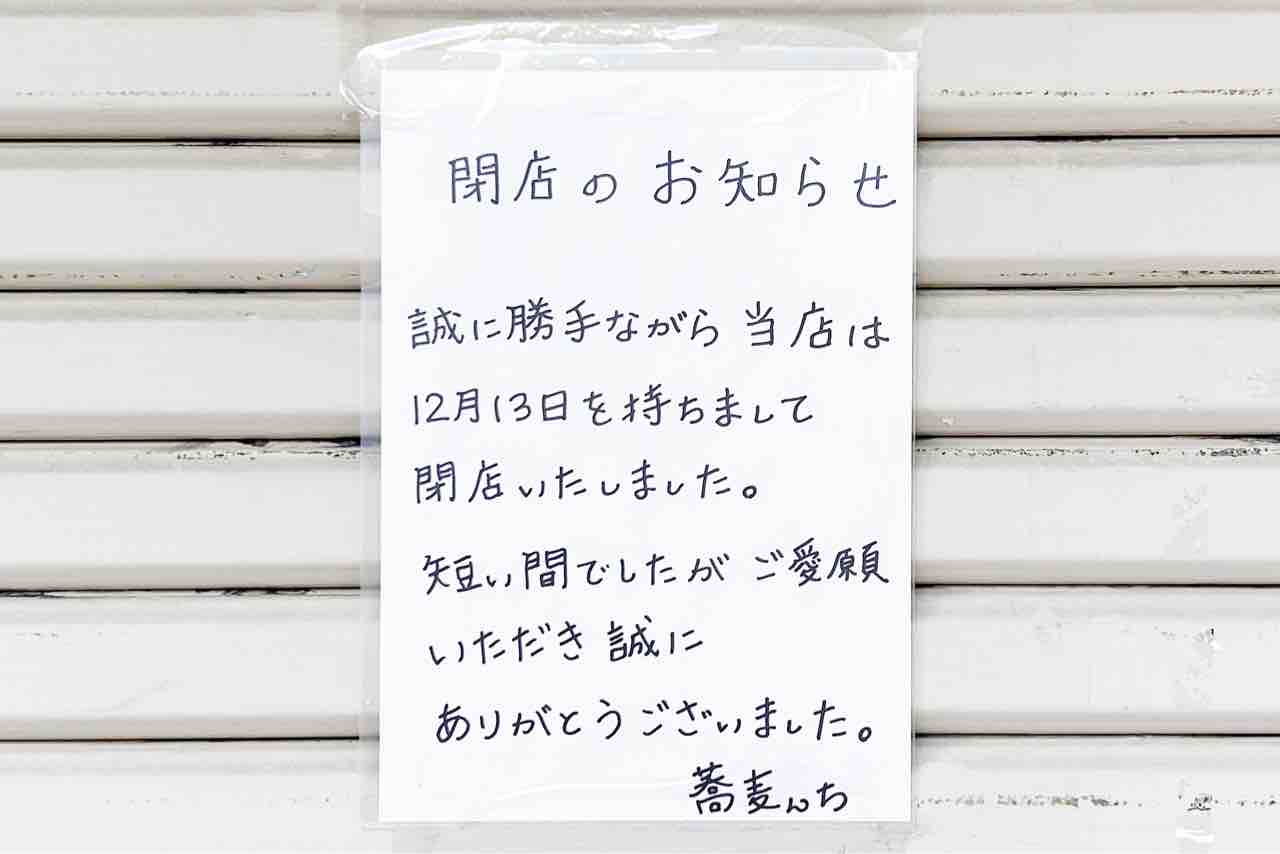 閉店のお知らせ
誠に勝手ながら 当店は
12月13日を持ちまして
閉店いたしました。
短い間でしたが ご愛願
いただき 誠に
ありがとうございました。
蕎麦んち